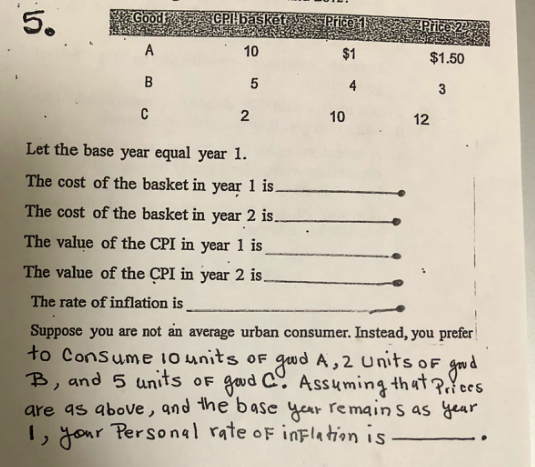 5.
Good CPI basket Price 1 Price 2
A 10 $1 $1.50
B 5 4 3
C 2 10 12
Let the base year equal year 1.
The cost of the basket in year 1 is
The cost of the basket in year 2 is
The value of the CPI in year 1 is
The value of the CPI in year 2 is
The rate of inflation is
Suppose you are not an average urban consumer. Instead, you prefer
to Consume 10 units OF good A, 2 Units OF good
B, and 5 units OF good C. Assuming that Prices
are as above, and the base year remains as year
1, your Personal rate OF inflation is .